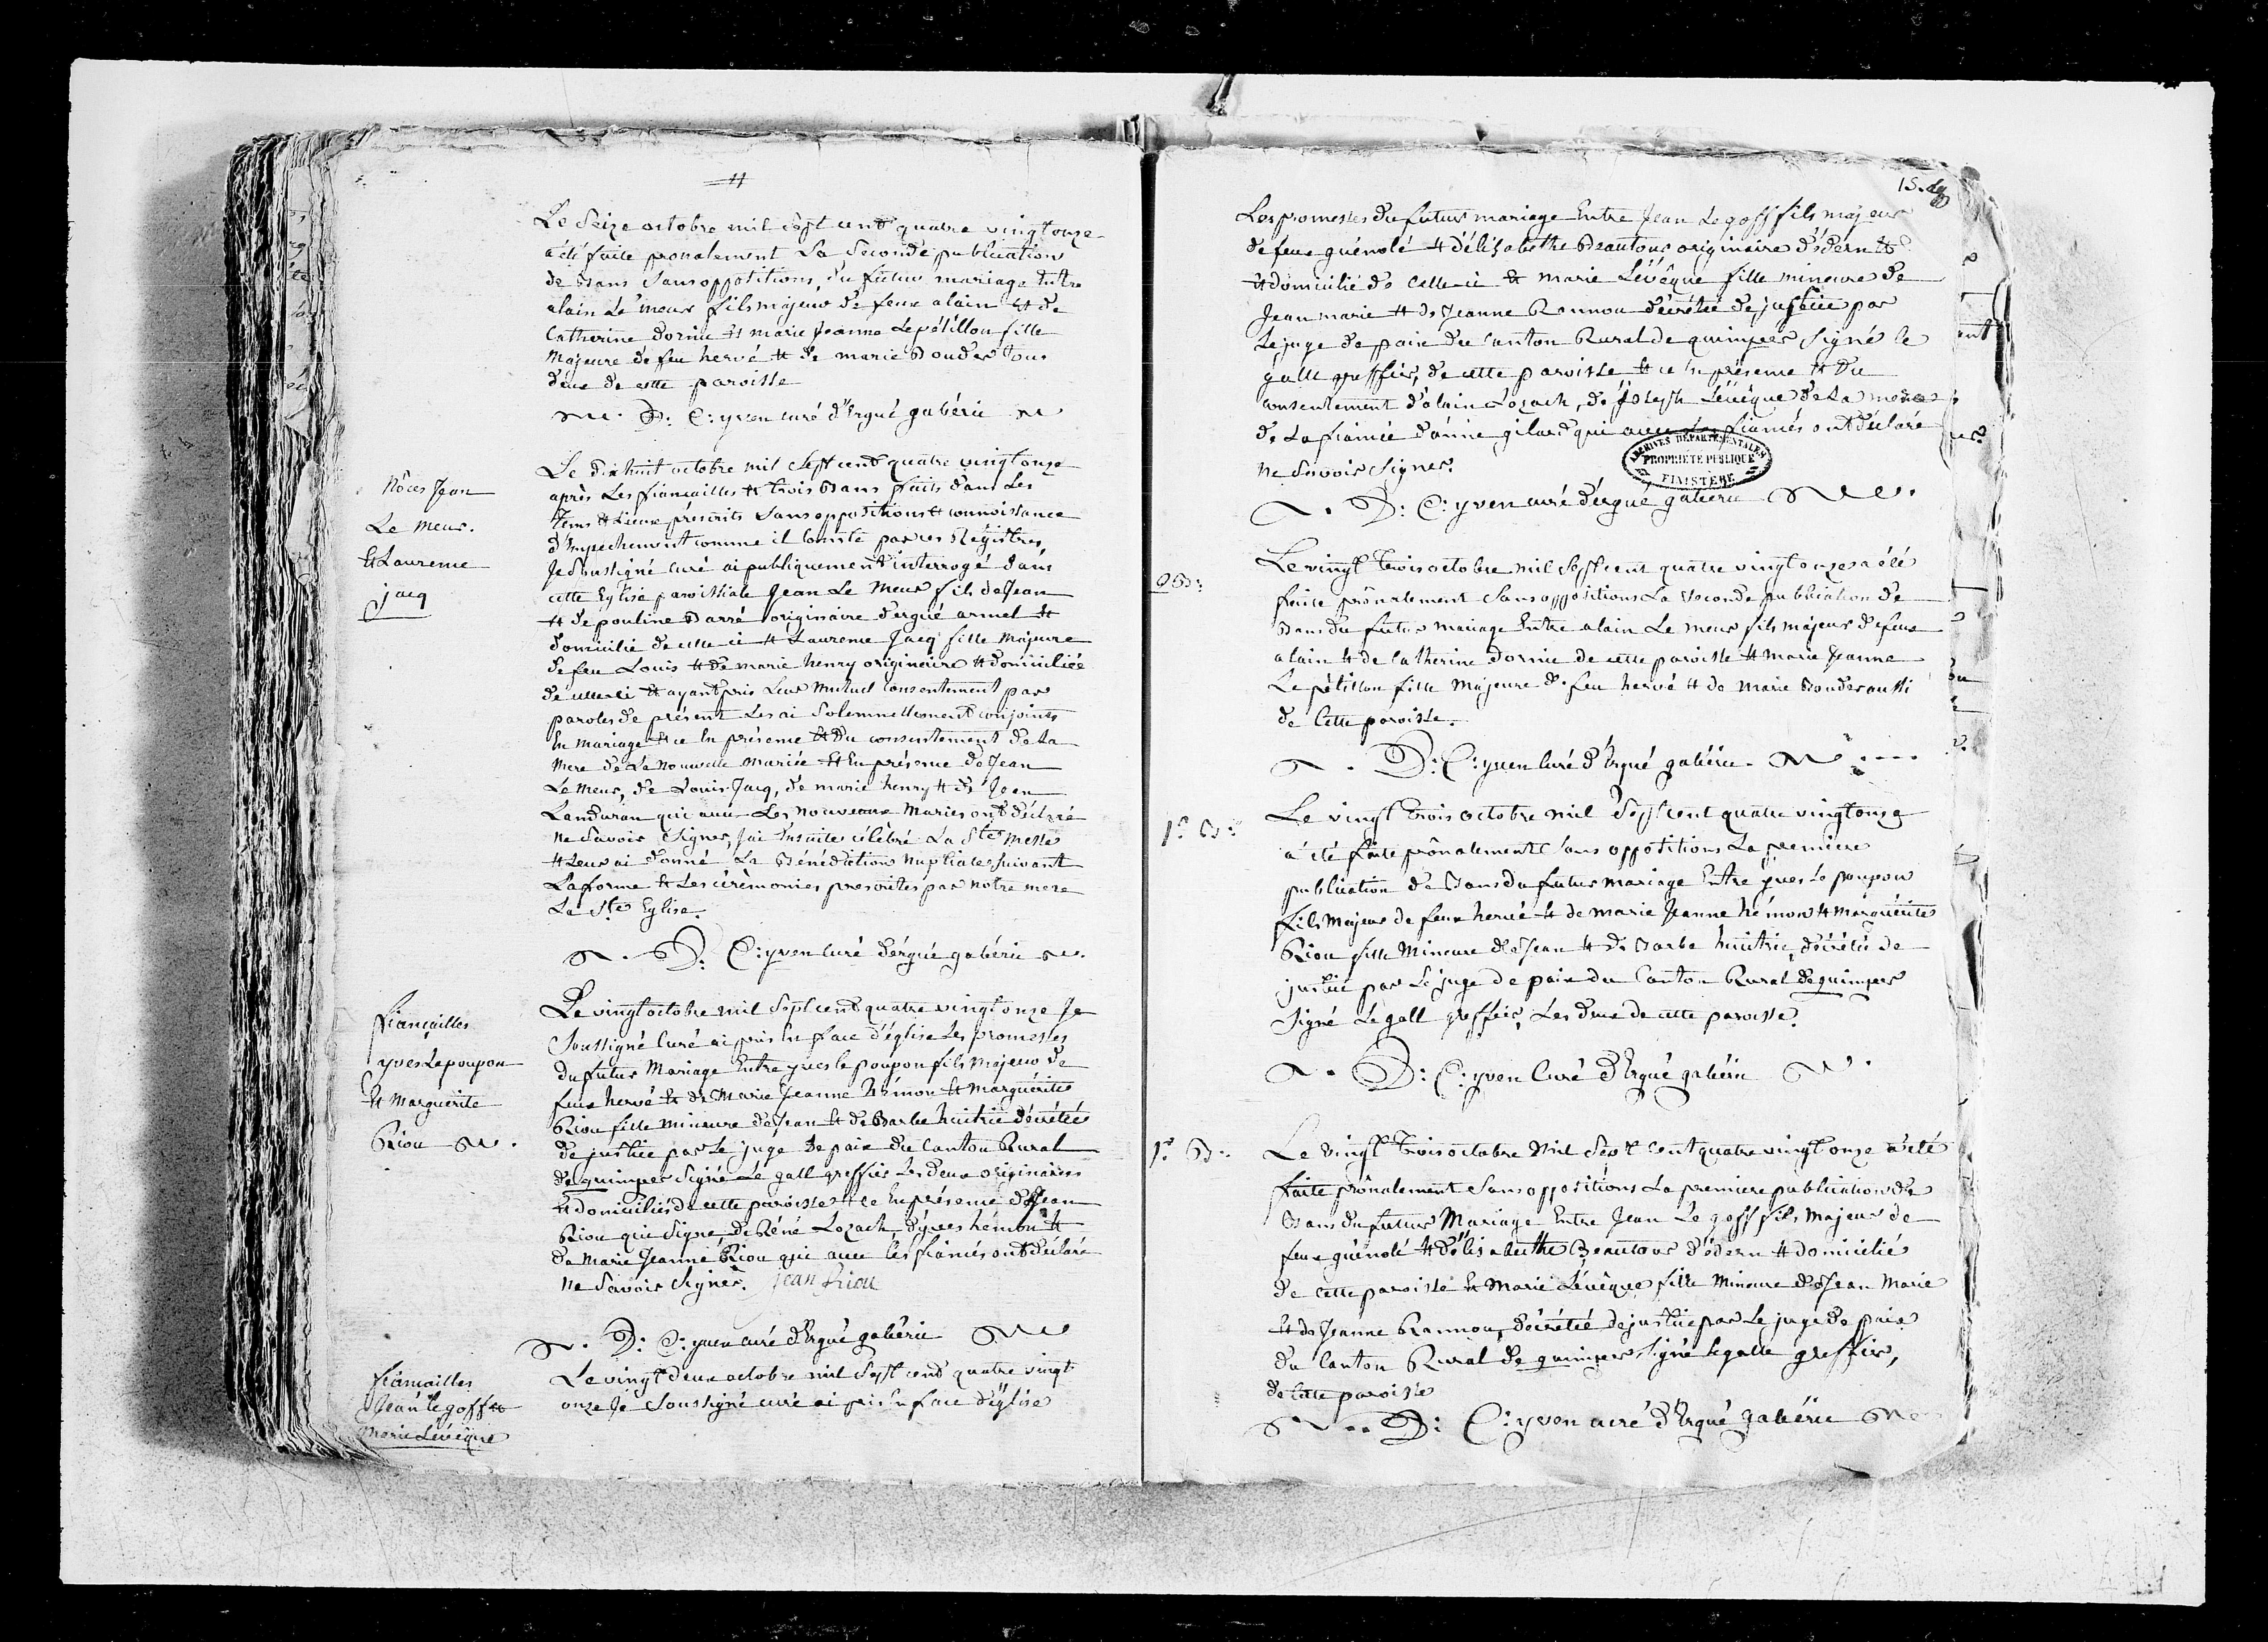 Le Seize octobre mil sept cent quatre vingt onze
a été faite pronalement La Seconde publication
de Bans Sans oppositions, du futur mariage Entre
alain Le meur fils majeur de feux alain Et de
Catherine dornic Et marie Jeanne Le pétillon fille
Majeure de feu hervé Et de marie Bouder tous
deux de cette paroisse
D: C: yven curé d'Ergué gabéric
Nôces Jean
Le Meur.
Et Laurence
jacq
Le dixhuit octobre mil Sept cent quatre vingt onze
après Les fiançailles Et trois Bans faits dans Les
tems Et Lieux préscrits Sans oppositions Et connoissance
d'Empechement comme il Conste par ces Régistres,
Je Soussigné Curé ai publiquement interrogé dans
cette Eglise paroissiale Jean Le Meur fils de Jean
Et de pouline Barré originaire d'ergué armel Et
domicilié de celle ci Et Laurence Jacq fille Majeure
de feu Louis Et de marie henry originaire Et domiciliée
de celle ci Et ayant pris Leur Mutuel Consentement par
paroles de présent Les ai Solemnellement conjoints
En Mariage Et ce En présence Et Du consentement de La
Mere de La Nouvelle Mariée Et En présence de Jean
Le Meur, de Louis Jacq, de marie henry Et de Jean
Landurán qui avec Les Nouveaux Mariés ont déclaré
Ne Savoir Signer, J'ai Ensuite célébré La Ste Messe
Et Leur ai donné La Bénédiction Nuptiale Suivant
La forme Et Les cérèmonies prescrites par Notre mere
La Ste Eglise.
D: C: yven Curé d'érgué gabéric
fiançailles
yves Le poupon
Et Marguerite
Riou
Le vingt octobre mil Sept cent quatre vingt onze Je
Soussigné Curé ai pris En face d'église Les promesses
Du futur Mariage Entre yves le poupon fils Majeur de
feux hervé Et de Marie Jeanne hémon Et Marguérite
Riou fille Mineure de Jean Et de Barbe huitric décrétée
de justice par Le juge de paix du Canton Rural
de quimper Signé Le gall greffier Les deux originaires
Et domiciliés de cette paroisse Et ce En présence de Jean
Riou qui Signe, de Réné Lozach, d'yves hémon Et
de Marie Jeanne Riou qui avec les fiancés ont déclaré
Ne Savoir Signer. jean Riou
D: C: yven curé d'Ergué gabéric
fiançailles
Jean le goff Et
Marie Lévêque
Le vingt deux octobre mil Sept cent quatre vingt
onze Je Soussigné curé ai pris En face d'église
15.
Les promesses du futur mariage Entre Jean Le goff fils majeur
de feux guénolé Et d'élisabethe Beautour originaire d'édern Et
Et domicilié de Celle ci Et marie Lévêque fille mineure de
Jean marie Et de Jeanne Rannou décrétée de justice par
Le juge de paix du Canton Rural de quimper Signé le
gall greffier, de cette paroisse Et ce En présence Et Du
consentement d'alain Lozach, de Joseph Lévêque de La mere
de La fiancée d'annie gilard qui avec Les fiancés ont déclaré
Ne Savoir Signer.
ARCHIVES DÉPARTEMENTALES
PROPRIÉTÉ PUBLIQUE
FINISTÈRE
D: C: yven curé d'érgué gabéric
2e B:
Le vingt trois octobre mil Sept cent quatre vingt onze a été
faite prônalement Sans oppositions La Seconde publication de
Bans du futur mariage Entre alain Le meur fils majeur de feux
alain Et de Catherine dornic de cette paroisse Et marie Jeanne
Le pétillon fille Majeure de feu hervé Et de Marie Bouder aussi
de Cette paroisse.
D: C: yven Curé d'Ergué gabéric
1r B:
Le vingt trois octobre mil Sept cent quatre vingt onze
a été faite prônalement Sans oppositions La premiere
publication de Bans du futur mariage Entre yves Le poupon
fils Majeur de feux hervé Et de marie Jeanne hémon Et Marguérite
Riou fille Mineure de Jean Et de Barbe huitric, décrétée de
justice par Le juge de paix du Canton Rural de quimper
Signé Le gall greffier, Les deux de cette paroisse.
D: C: yven Curé d'Ergué gabéric
1r B:
Le Vingt trois octobre Mil Sept Cent quatre vingt onze a été
faite prônalement Sans oppositions La premiere publication de
Bans du futur Mariage Entre Jean Le goff fils Majeur de
feux guénolé Et d'élisabethe Beautour d'édern Et domicilié
de cette paroisse Et Marie Lévêque fille Mineure de Jean Marie
Et de Jeanne Rannou, décrétée de justice par Le juge de paix
du Canton Rural de quimper Signé le gall greffier,
de Cette paroisse
D: C: yven curé d'Ergué gabéric